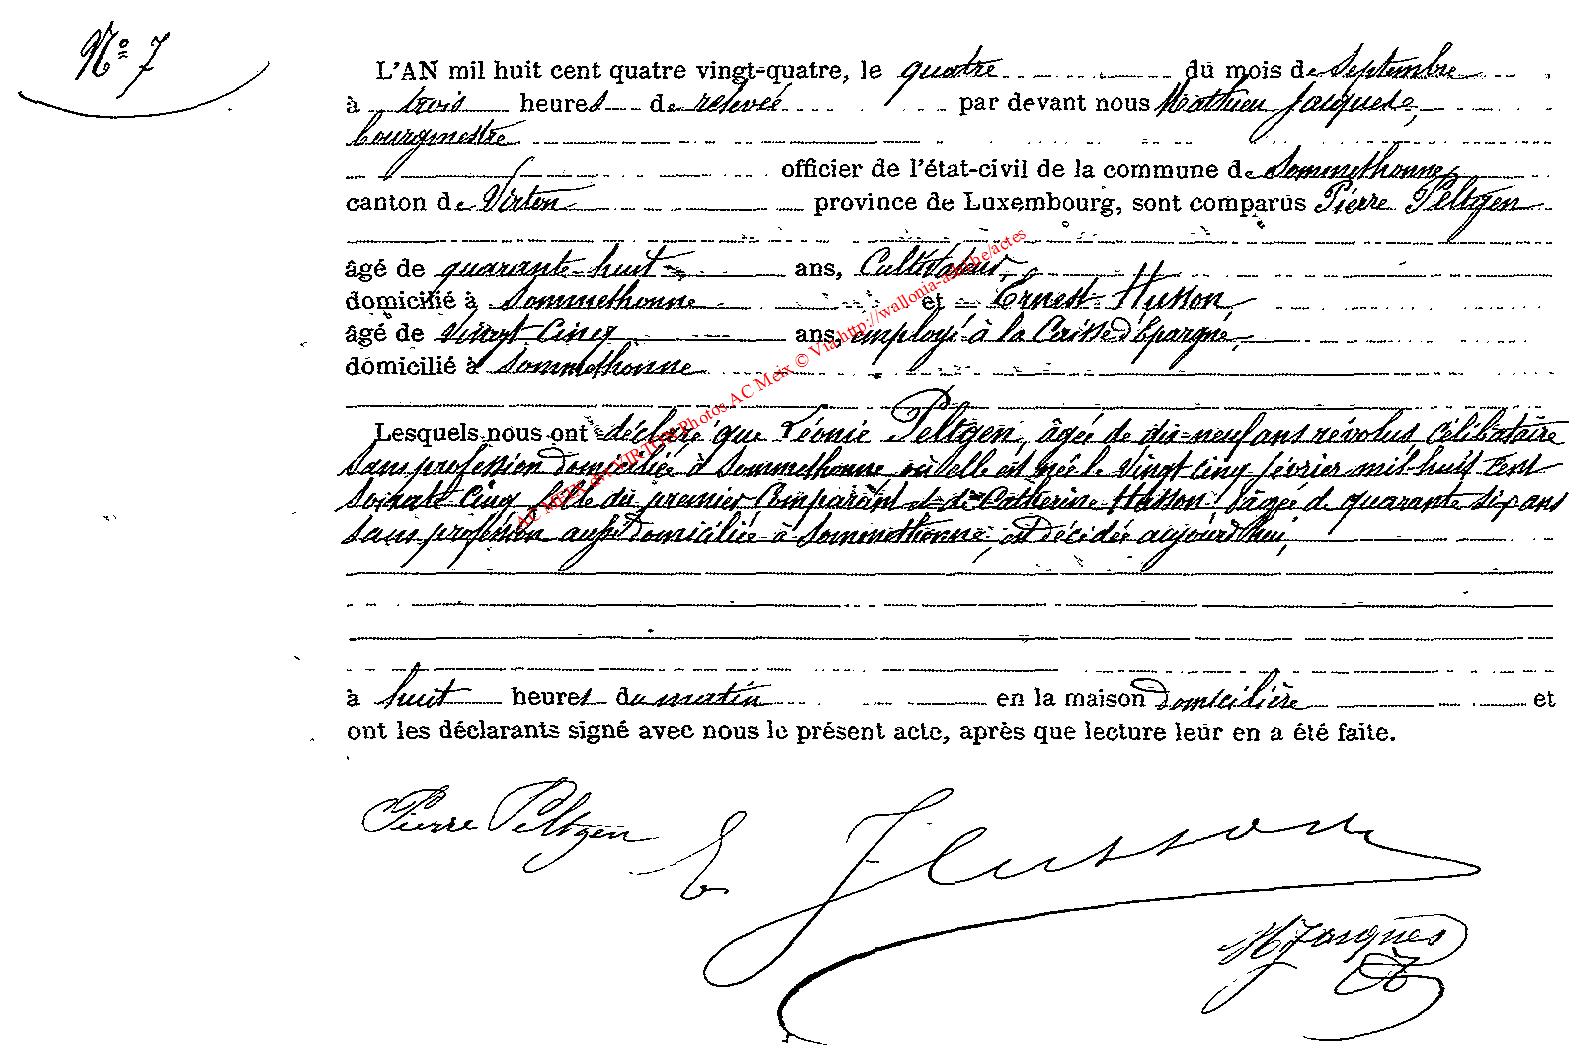 N° 7
L'AN mil huit cent quatre vingt-quatre, le quatre du mois de Septembre
à trois heures de relevée par devant nous Mathieu Jacques,
bourgmestre
officier de l'état-civil de la commune de Sommethonne,
canton de Virton province de Luxembourg, sont comparus Pierre Peltgen
âgé de quarante-huit ans, Cultivateur,
domicilié à Sommethonne et Ernest Husson,
âgé de vingt cinq ans, employé à la Caisse d'Epargne,
domicilié à Sommethonne
Lesquels nous ont déclaré que Léonie Peltgen, âgée de dix-neuf ans révolus célibataire
sans profession domiciliée à Sommethonne où elle est née le vingt cinq février mil huit cent
soixante cinq fille du premier Comparant et de Catherine Husson âgée de quarante six ans
sans profession aussi domiciliée à Sommethonne, est décédée aujourd'hui,
à huit heures du matin en la maison domicilière et
ont les déclarants signé avec nous le présent acte, après que lecture leur en a été faite.
Pierre Peltgen
E Husson
M Jacques
Photos AC Meix © Via http://wallonia-asbl.be/actes